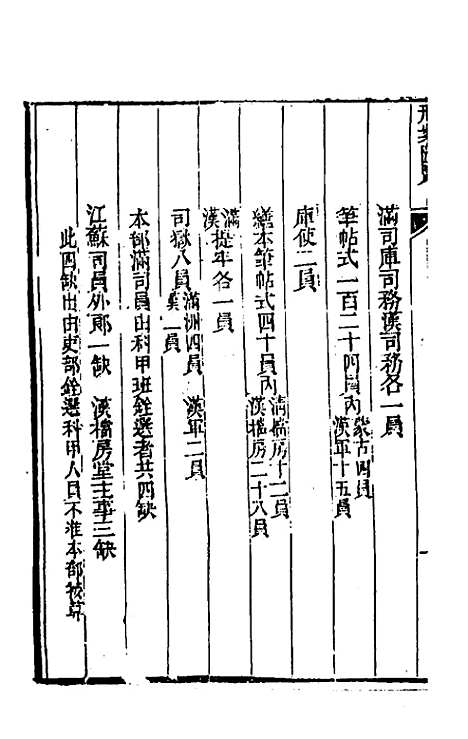 滿司庫司務漢司務各一員
筆帖式一百二十四員內蒙古四員漢軍十五員
庫使二員
繕本筆帖式四十員內清檔房十二員漢檔房二十八員
滿漢提牢各一員
司獄八員滿洲四員漢軍二員漢二員
本部滿司員由科甲班銓選者共四缺
江蘇司員外郎一缺 漢檔房堂主事三缺
此四缺出由吏部銓選科甲人員不准本部